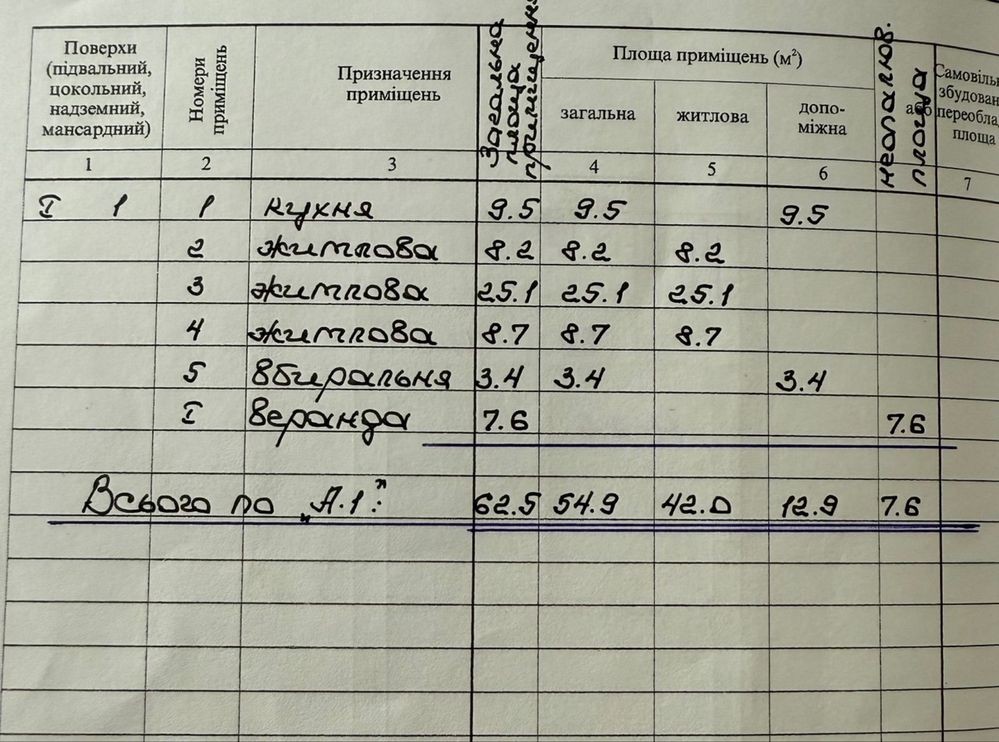 Поверхи (підвальний, цокольний, надземний, мансардний)
Номери приміщень
Призначення приміщень
Загальна площа приміщення
Площа приміщень (м²)
загальна
житлова
допо-міжна
неопалюв. або площа
Самовіль збудован переобла площа
1 2 3 4 5 6 7
I 1 1 кухня 9.5 9.5 9.5
2 житлова 8.2 8.2 8.2
3 житлова 25.1 25.1 25.1
4 житлова 8.7 8.7 8.7
5 вбиральня 3.4 3.4 3.4
I веранда 7.6 7.6
Всього по „А.1": 62.5 54.9 42.0 12.9 7.6